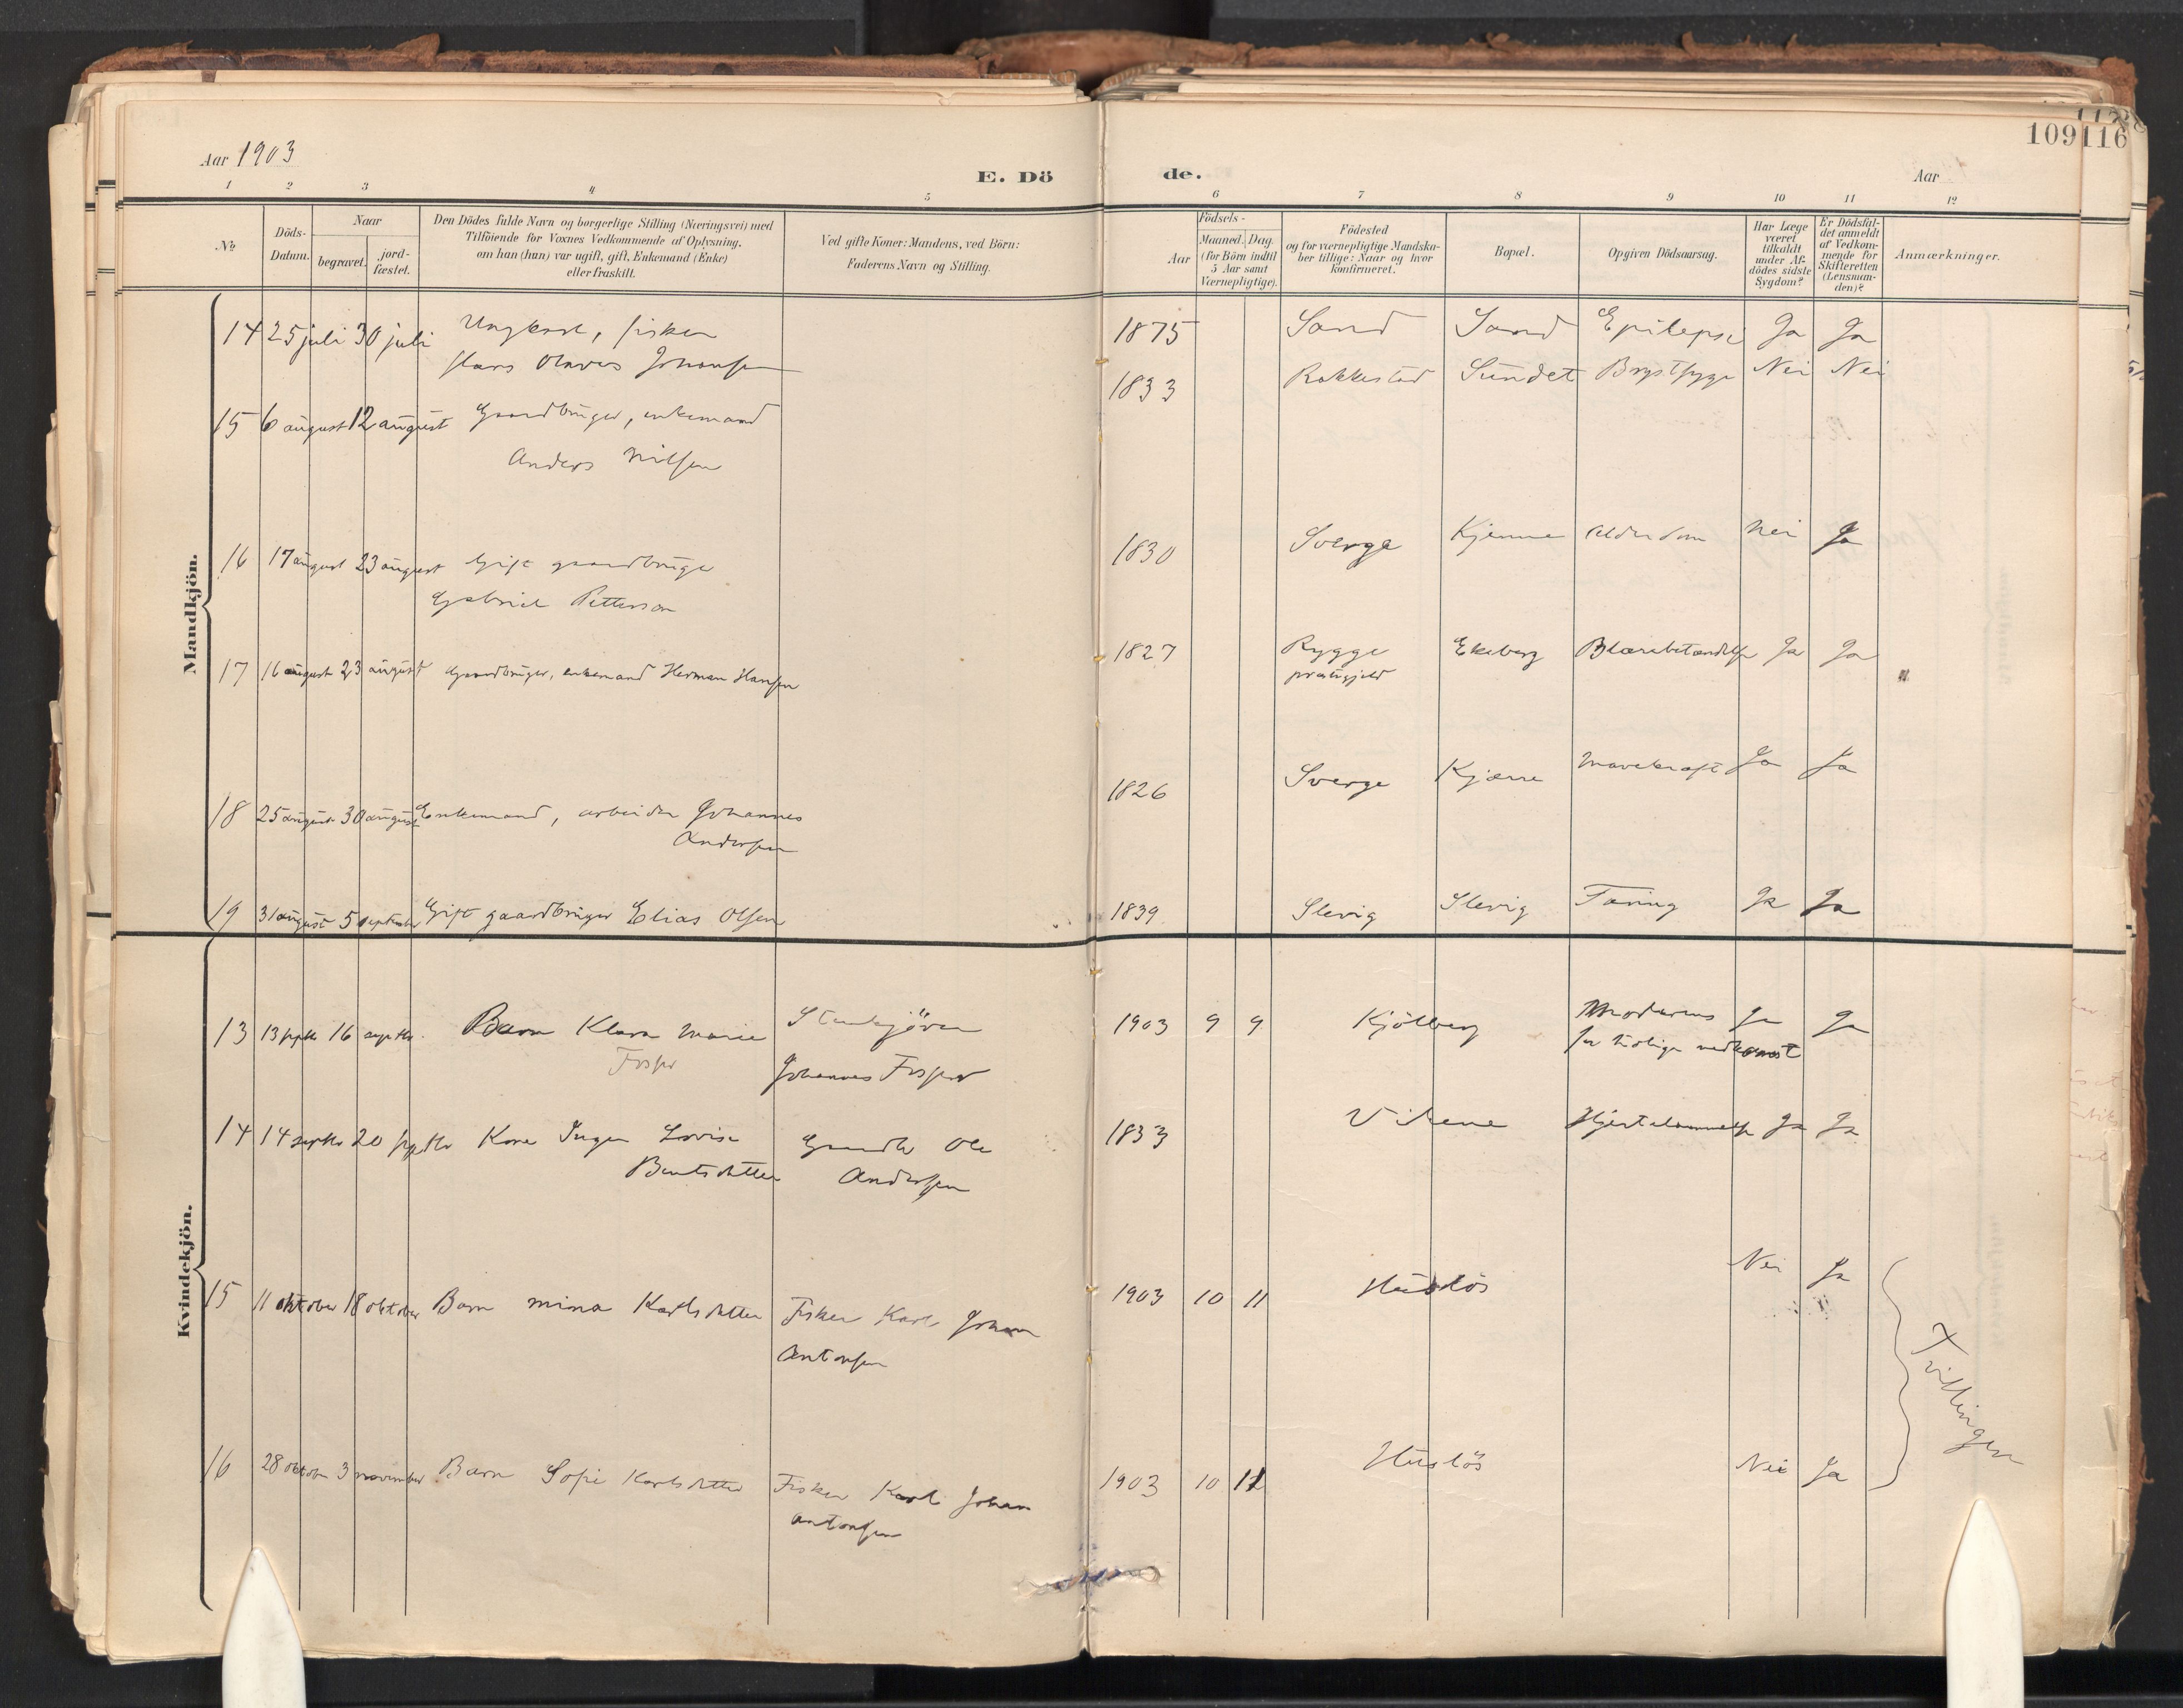 Aar 1903
E. Dö
de.
Aar
109
116
1 2 3 4 5 6 7 8 9 10 11 12
No
Döds-Datum.
Naar
begravet.
jord-fæstet.
Den Dödes fulde Navn og borgerlige Stilling (Næringsvei) med
Tilföiende for Voxnes Vedkommende af Oplysning,
om han (hun) var ugift, gift, Enkemand (Enke)
eller fraskilt.
Ved gifte Koner: Mandens, ved Börn:
Faderens Navn og Stilling.
Födsels-
Aar
Maaned. Dag.
(for Börn indtil
5 Aar samt
Værnepligtige).
Födested
og for værnepligtige Mandska-
ber tillige: Naar og hvor
konfirmeret.
Bopæl.
Opgiven Dödsaarsag.
Har Læge
været
tilkaldt
under Af-
dödes sidste
Sygdom?
Er Dödsfal-
det anmeldt
af Vedkom-
mende for
Skifteretten
(Lensman-
den)?
Anmærkninger.
Mandkjön.
14 25 juli 30 juli Ungkarl, fisker
Hans Olaves Johansen
1875 Sand Sand Epilepsi Ja Ja
15 6 august 12 august Gaardbruger, enkemand
Anders Nilsen
1833 Rakkestad Sundet Brystsyge Nei Nei
16 17 august 23 august Gift gaardbruger
Gabriel Petterson
1830 Sverge Kjenne Alderdom Nei Ja
17 16 august 23 august Gaardbruger, enkemand Herman Hansen
1827 Rygge Ekeberg Blærebetændelse Ja Ja
præstegjeld
18 25 august 30 august Enkemand, arbeider Johannes
Andersen
1826 Sverge Kjærre Mavekræft Ja Ja
19 31 august 5 september Gift gaardbruger Elias Olsen
1839 Slevig Slevig Tæring Ja Ja
Kvindekjön.
13 13 septbr 16 septbr. Barn Klara Marie
Johannes
1903 9 9 Kjölberg Moderens Ja Ja
for tidlige nedkomst
14 14 septbr 20 septbr Kone Inger Lovise
Bentsdatter
Gaardbr Ole
Andersen
1833 Vikene Hjertelammelse Ja Ja
15 11 oktober 18 oktober Barn Mina Karlsdatter Fisker Karl Johan
Antonsen
1903 10 11 Huslös Nei Ja
16 28 oktober 3 november Barn Sofie Karlsdatter Fisker Karl Johan
Antonsen
1903 10 11 Huslös Nei Ja
Tvillinger